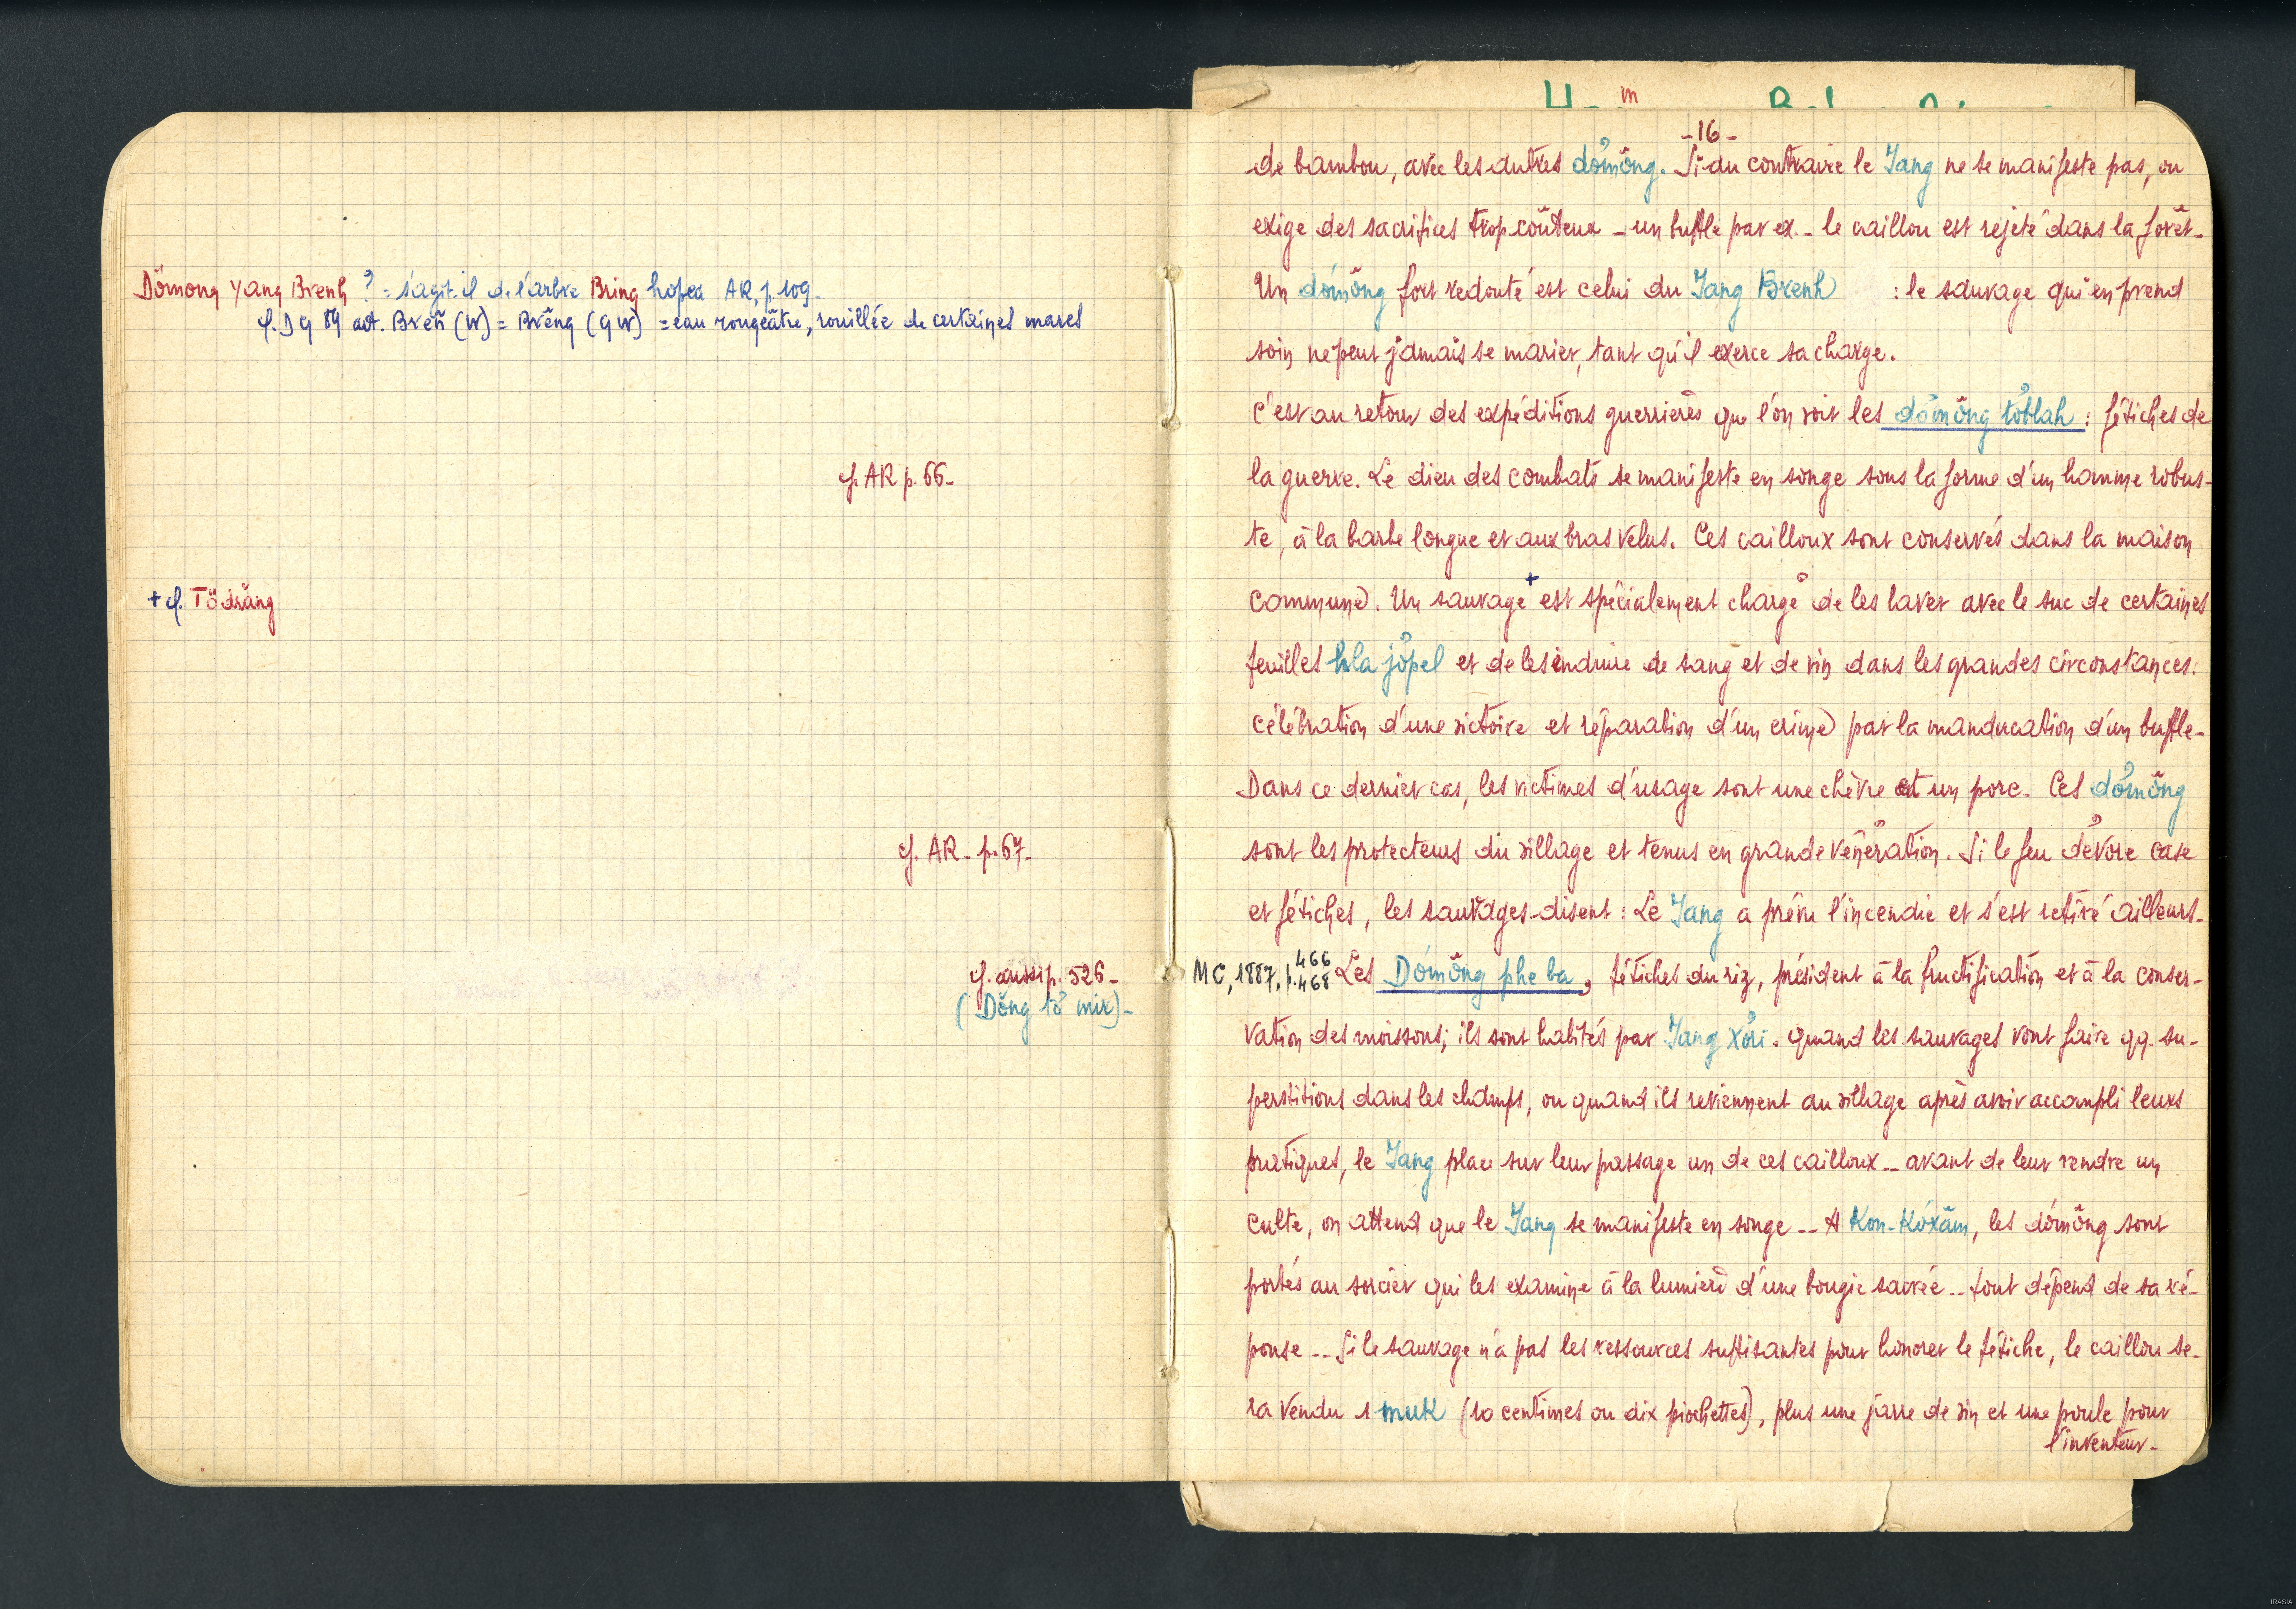 Dömong Yang Brenh ? = s'agit-il de l'arbre Bring hopea AR, p. 109.
cf. D G 89 art. Breñ (W) = Brĕng (GW) = eau rougeâtre, rouillée de certaines mares
cf. AR p. 66-
+ cf. Tödrăng
cf. AR - p. 67-
cf. aussi p. 526-
(Dŏng tơ mir)-
-16-
de bambou, avec les autres dơmŏng. Si au contraire le Jang ne se manifeste pas, ou
exige des sacrifices trop coûteux - un buffle par ex. - le caillou est rejeté dans la forêt-
Un dơmŏng fort redouté est celui du Jang Brenh : le sauvage qui en prend
soin ne peut jamais se marier, tant qu'il exerce sa charge.
C'est au retour des expéditions guerrières que l'on voit les dơmŏng tơblah : fétiches de
la guerre. Le dieu des combats se manifeste en songe sous la forme d'un homme robus-
te, à la barbe longue et aux bras velus. Ces cailloux sont conservés dans la maison
commune. Un sauvage + est spécialement chargé de les laver avec le suc de certaines
feuilles hla jơpel et de les enduire de sang et de vin dans les grandes circonstances:
célébration d'une victoire et réparation d'un crime par la manducation d'un buffle-
Dans ce dernier cas, les victimes d'usage sont une chèvre et un porc. Ces dơmŏng
sont les protecteurs du village et tenus en grande vénération. Si le feu dévore case
et fétiches, les sauvages disent : Le Jang a prévu l'incendie et s'est retiré ailleurs-
MC, 1887, p. 466 468 Les Dơmŏng phe ba, fétiches du riz, président à la fructification et à la conser-
vation des moissons; ils sont habités par Jang Xơri. Quand les sauvages vont faire qq. su-
perstitions dans les champs, ou quand ils reviennent au village après avoir accompli leurs
pratiques, le Jang place sur leur passage un de ces cailloux -- avant de leur rendre un
culte, on attend que le Jang se manifeste en songe -- A Kon-Kơxăm, les dơmŏng sont
portés au sorcier qui les examine à la lumière d'une bougie sacrée -- tout dépend de sa ré-
ponse -- Si le sauvage n'a pas les ressources suffisantes pour honorer le fétiche, le caillou se-
ra vendu 1 muk (10 centimes ou dix piochettes), plus une jarre de vin et une poule pour
l'inventeur-
IRASIA